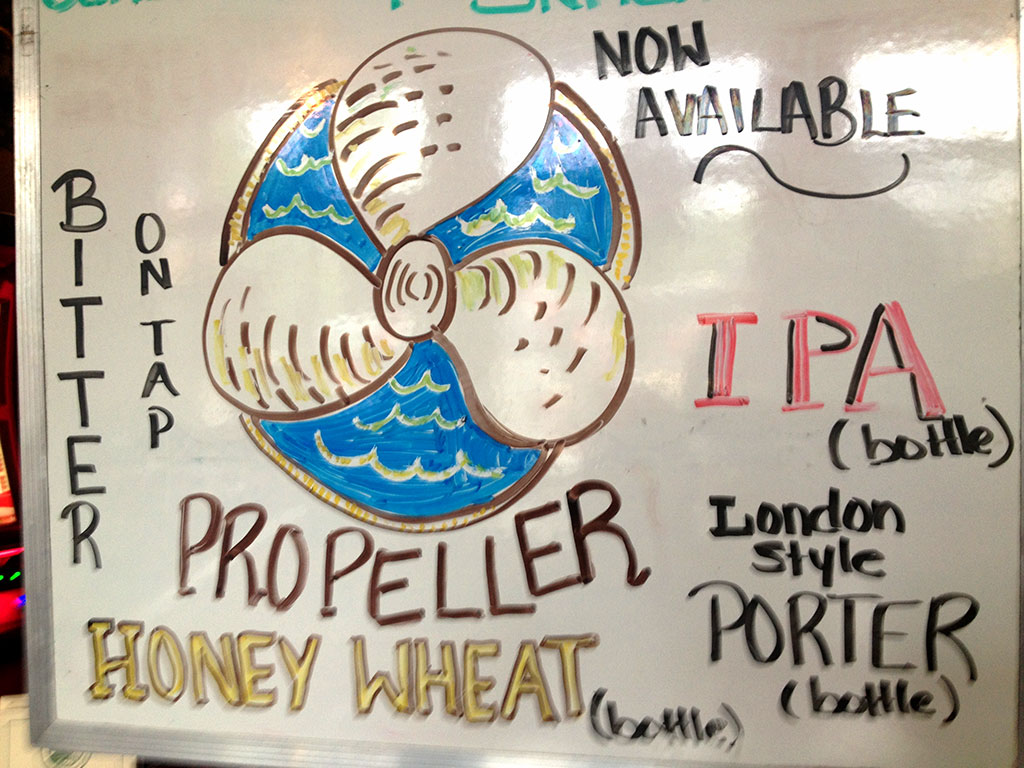 NOW
AVAILABLE
BITTER
ON TAP
IPA
(bottle)
London
Style
PORTER
(bottle)
PROPELLER
HONEY WHEAT
(bottle)